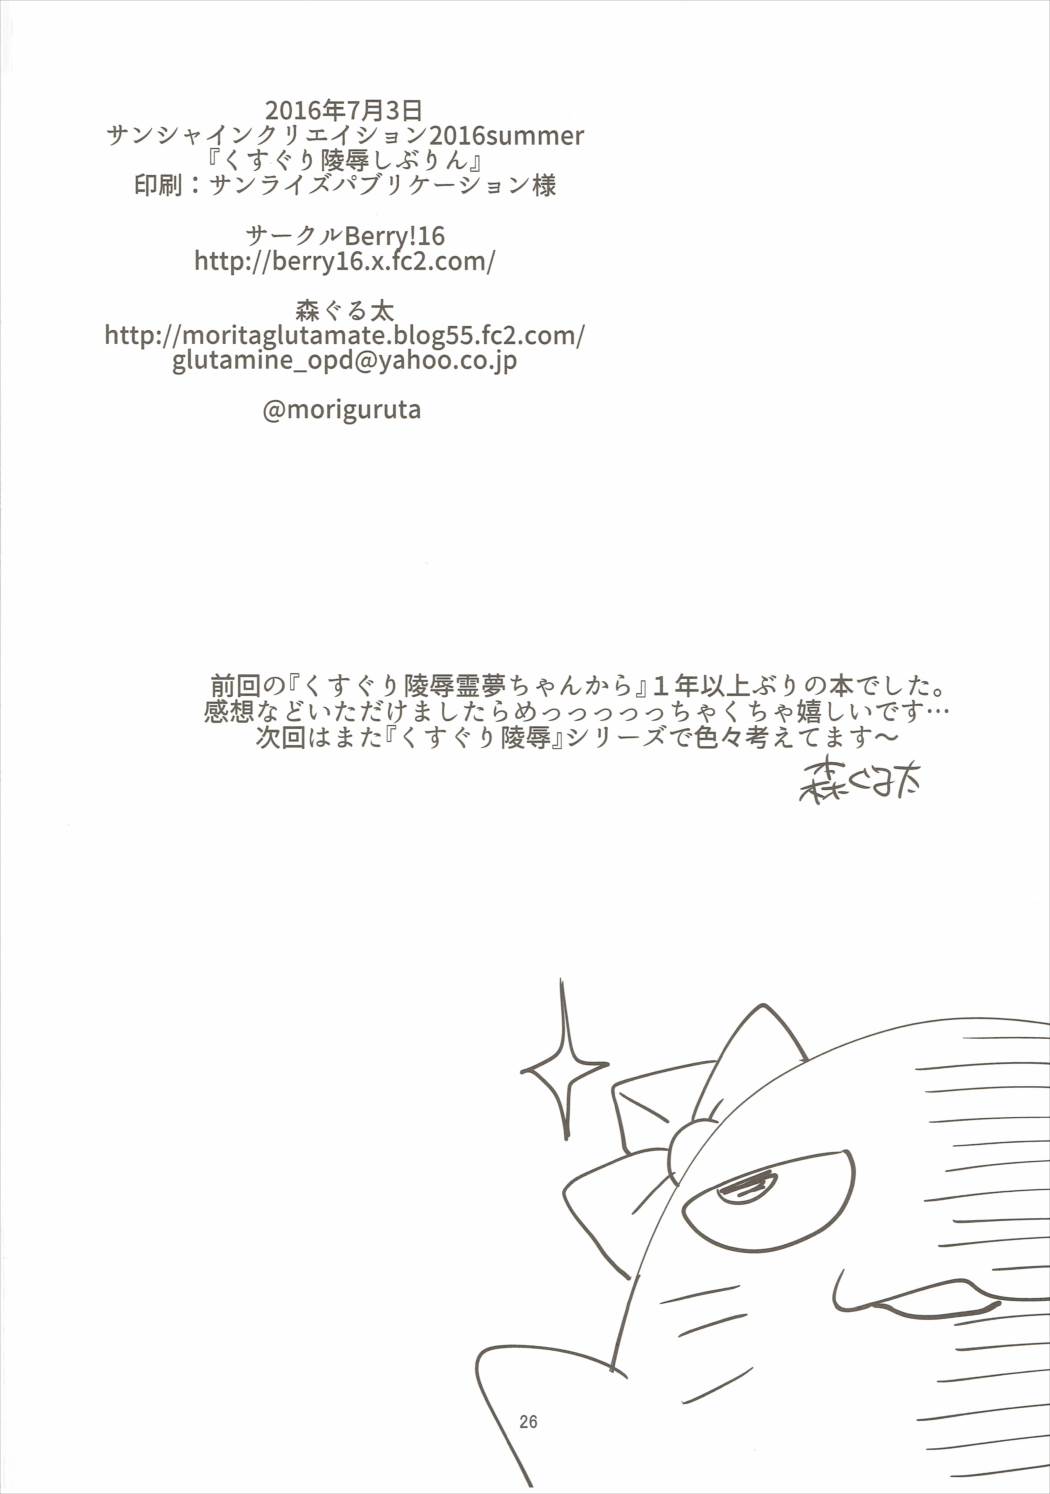 2016年7月3日
サンシャインクリエイション2016summer
『くすぐり陵辱しぶりん』
印刷：サンライズパブリケーション様
サークルBerry!16
http://berry16.x.fc2.com/
森ぐる太
http://moritaglutamate.blog55.fc2.com/
glutamine_opd@yahoo.co.jp
@moriguruta
前回の『くすぐり陵辱霊夢ちゃんから』１年以上ぶりの本でした。
感想などいただけましたらめっっっっっちゃくちゃ嬉しいです…
次回はまた『くすぐり陵辱』シリーズで色々考えてます～
森ぐる太
26